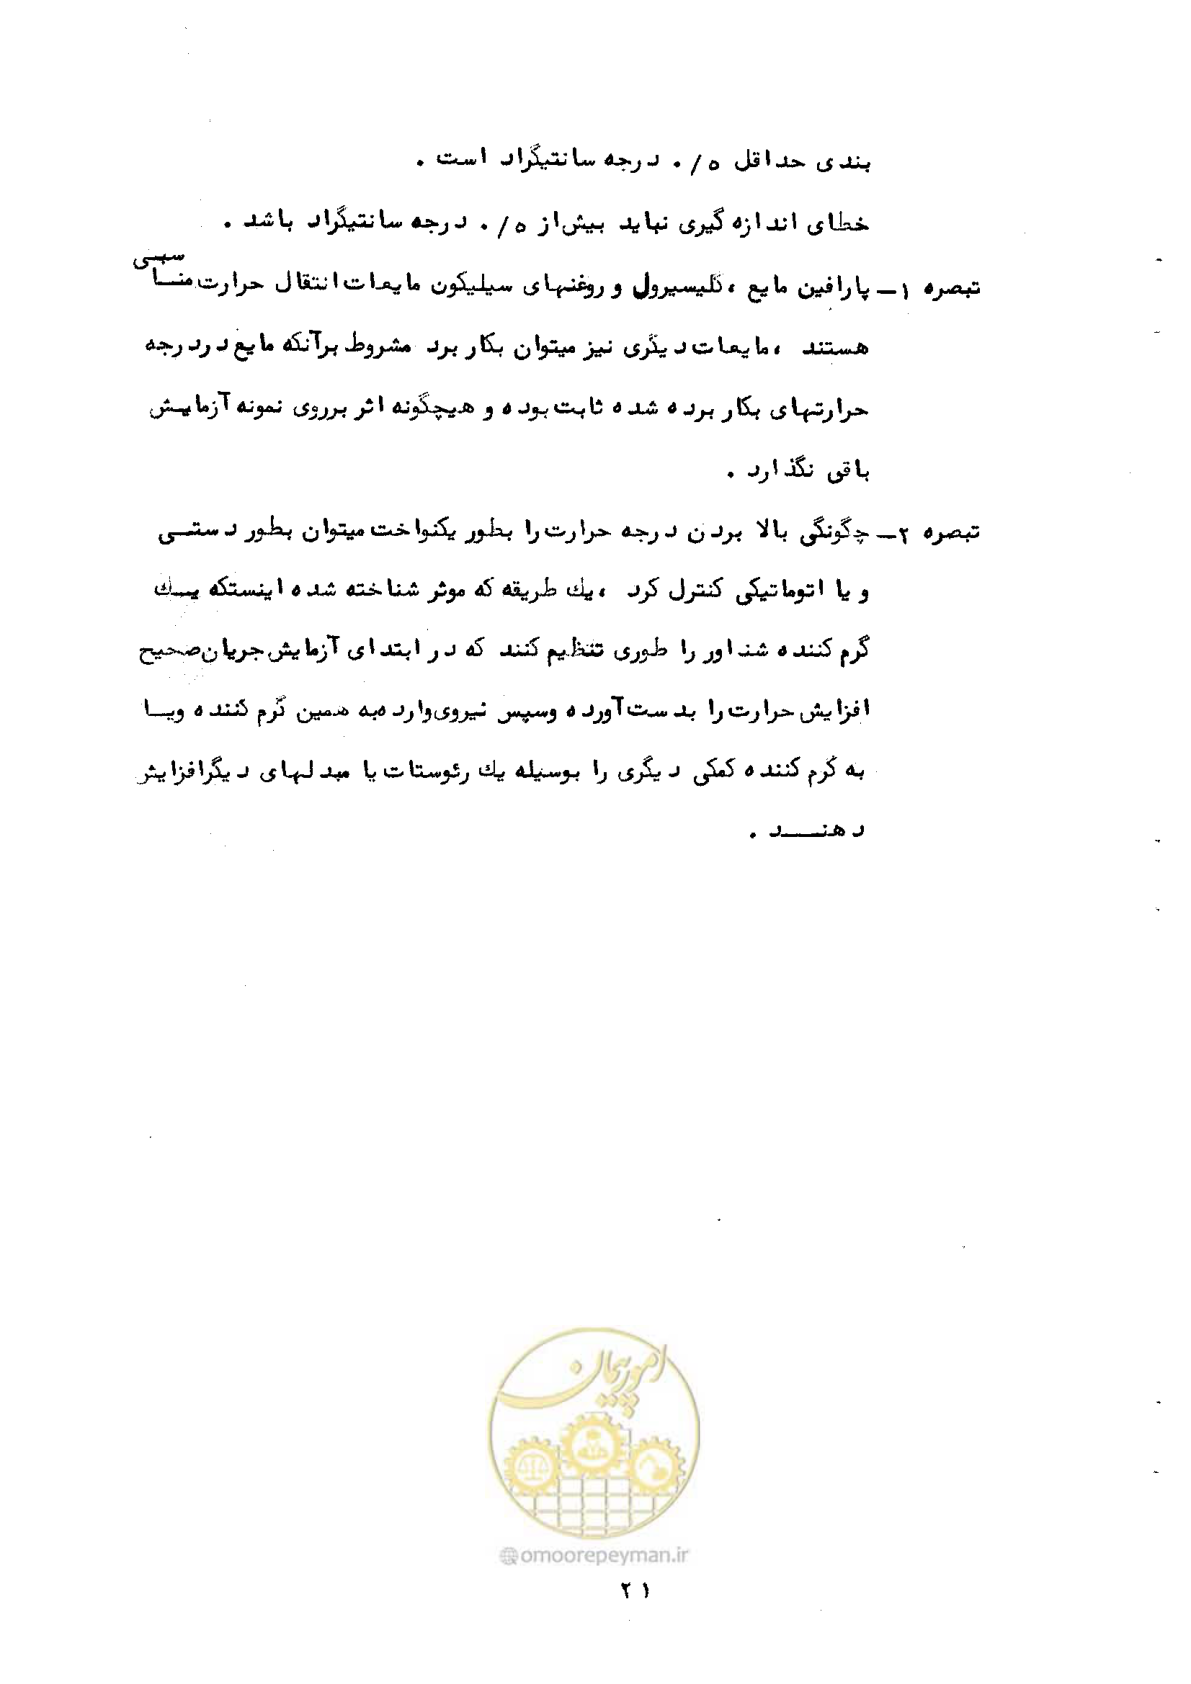 بندی حداقل ۰/۵ درجه سانتیگراد است .
خطای اندازه گیری نباید بیش از ۰/۵ درجه سانتیگراد باشد .
تبصره ۱ــ پارافین مایع ، گلیسیرول و روغنهای سیلیکون مایعات انتقال حرارت مناسبی
هستند ، مایعات دیگری نیز میتوان بکار برد مشروط برآنکه مایع دردرجه
حرارتهای بکار برده شده ثابت بوده و هیچگونه اثر برروی نمونه آزمایش
باقی نگذارد .
تبصره ۲ــ چگونگی بالا بردن درجه حرارت را بطور یکنواخت میتوان بطور دستی
و یا اتوماتیکی کنترل کرد ، یک طریقه که موثر شناخته شده اینستکه یک
گرم کننده شناور را طوری تنظیم کنند که در ابتدای آزمایش جریان صحیح
افزایش حرارت را بدست آورده وسپس نیروی وارده به همین گرم کننده ویا
به گرم کننده کمکی دیگری را بوسیله یک رئوستات یا مبدلهای دیگر افزایش
دهند .
امور پیمان
@omoorepeyman.ir
۲۱